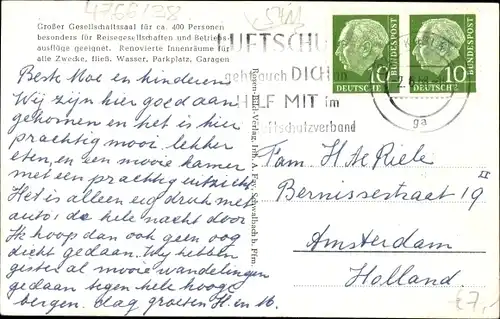 4766/38
£ 5411
Großer Gesellschaftssaal für ca. 400 Personen
besonders für Reisegesellschaften und Betriebs-
ausflüge geeignet. Renovierte Innenräume für
alle Zwecke, fließ. Wasser, Parkplatz, Garagen
Beste Moe en kinderen
Wij zijn hier goed aan
gekomen en het is hier
prachtig mooi lekker
eten, en een mooie kamer
met een prachtig uitzicht
Het is alleen erg druk met
auto's de hele nacht door
Ik hoop dan ook geen oog
dicht gedaan. Wij hebben
gister al mooie wandelingen
gedaan tegen hele hooge
bergen. dag groeten H. en M.
LUFTSCHU
geht auch DICH an
HILF MIT im
ftschutzverband
ga
10
DEUTSCHE
BUNDESPOST
10
DEUTSCHE
BUNDESPOST
Inh. A. Fay, Schwalbach b. Ffm.
Fam. H. te Riele
Bernissestraat 19 II
Amsterdam
Holland